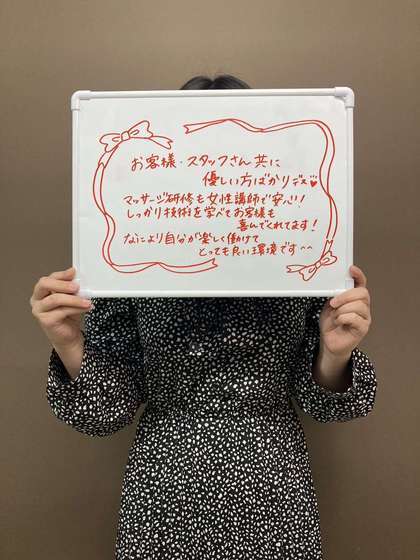 お客様・スタッフさん共に
優しい方ばかりデス♥
マッサージ研修も女性講師で安心!
しっかり技術を学べてお客様も
喜んでくれてます!
なにより自分が楽しく働けて
とっても良い環境です^^